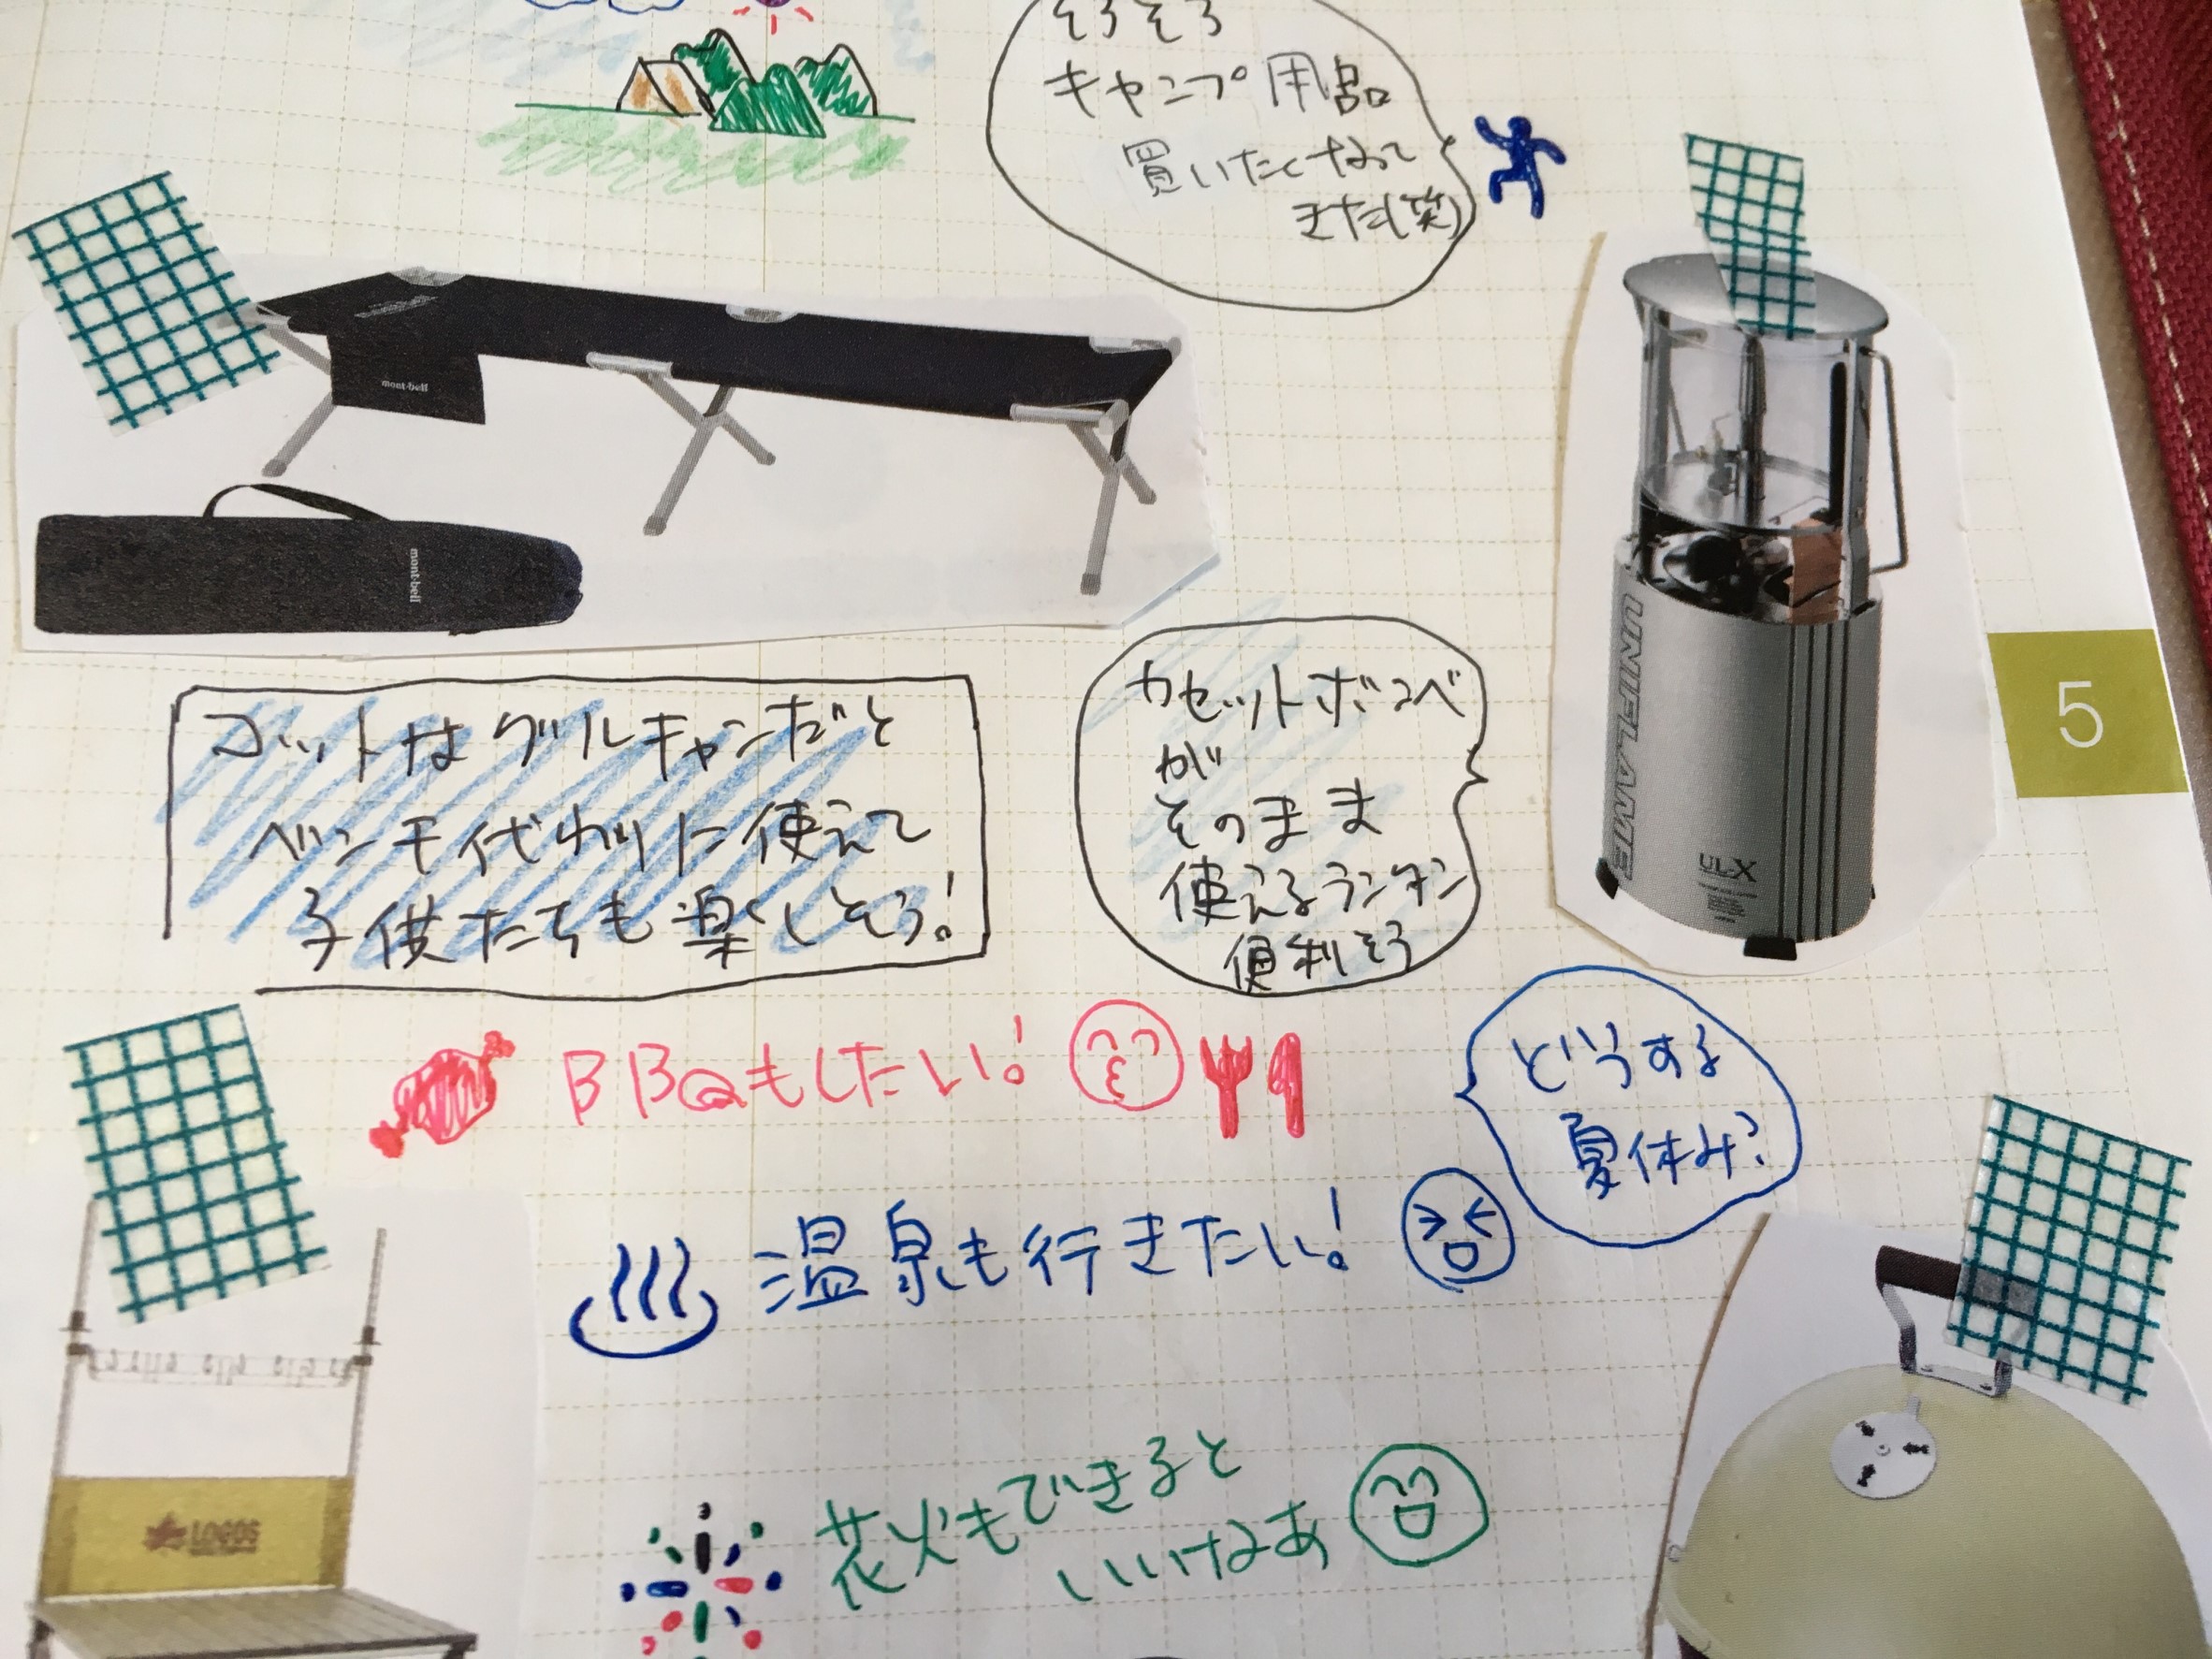 そろそろ
キャンプ用品
買いたくなって
きた(笑)
mont-bell
mont-bell
UNIFLAME
UL-X
5
コットはグルキャンだと
ベンチ代わりに使えて
子供たちも楽しそう!
カセットボンベ
が
そのまま
使えるランタン
便利そう
BBQもしたい!
どうする
夏休み?
温泉も行きたい!
LOGOS
花火もできると
いいなあ